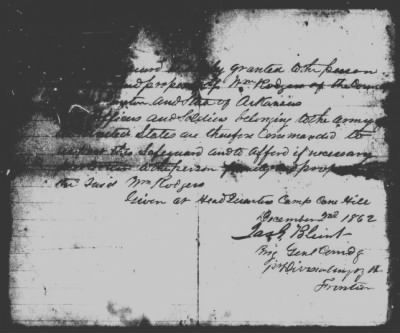 granted to the person
and property of Wm Rodgers of the
and State of Arkansas
Officers and Soldiers belonging to the army
United States are therefore Commanded to
this Safeguard and to afford if necessary
to the person family and
the said Wm Rodgers
Given at Head Quarters Camp Cane Hill
December 2nd 1862
Jas G Blunt
Brig Genl Comdg
1st Division Army of the
Frontier